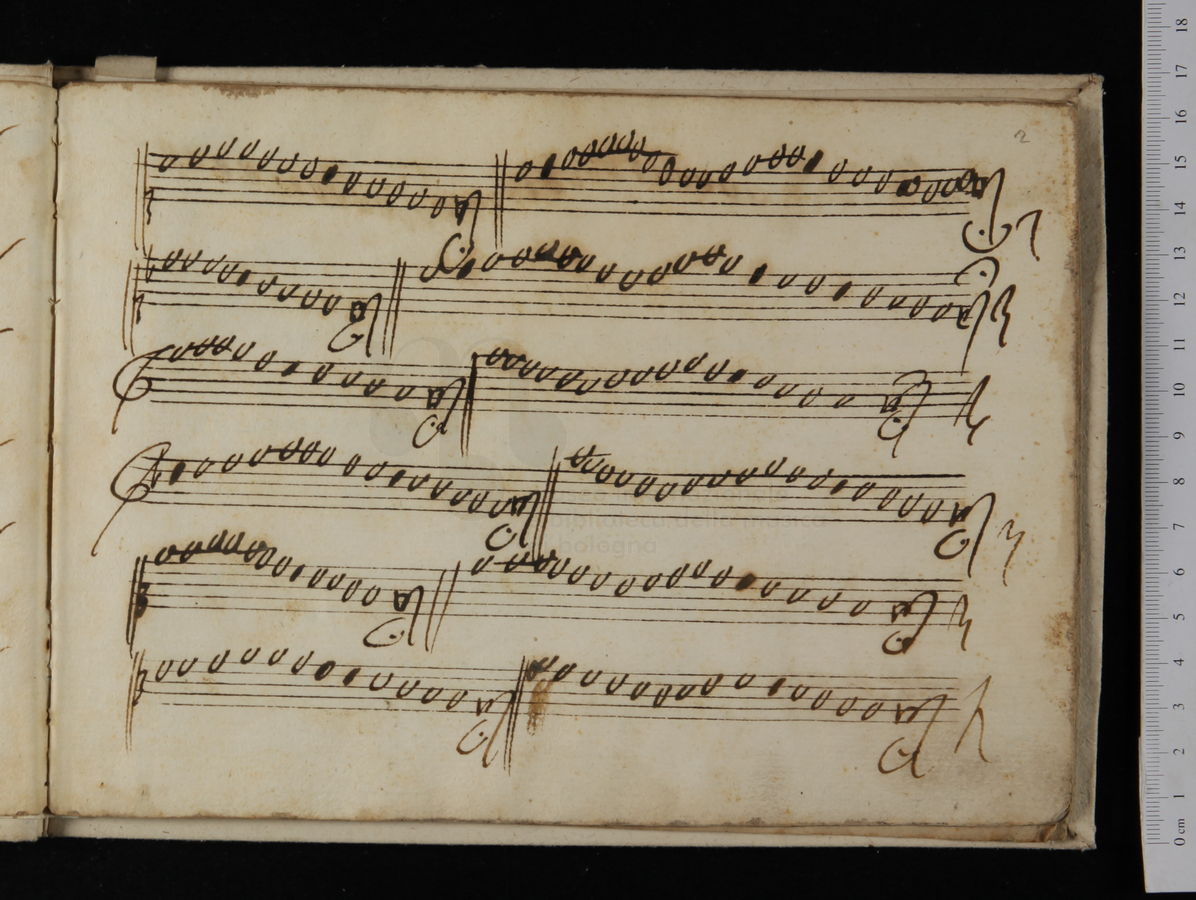 2
18
17
16
15
14
13
12
11
10
9
8
7
6
5
4
3
2
1
0 cm
biblioteca della musica
bologna